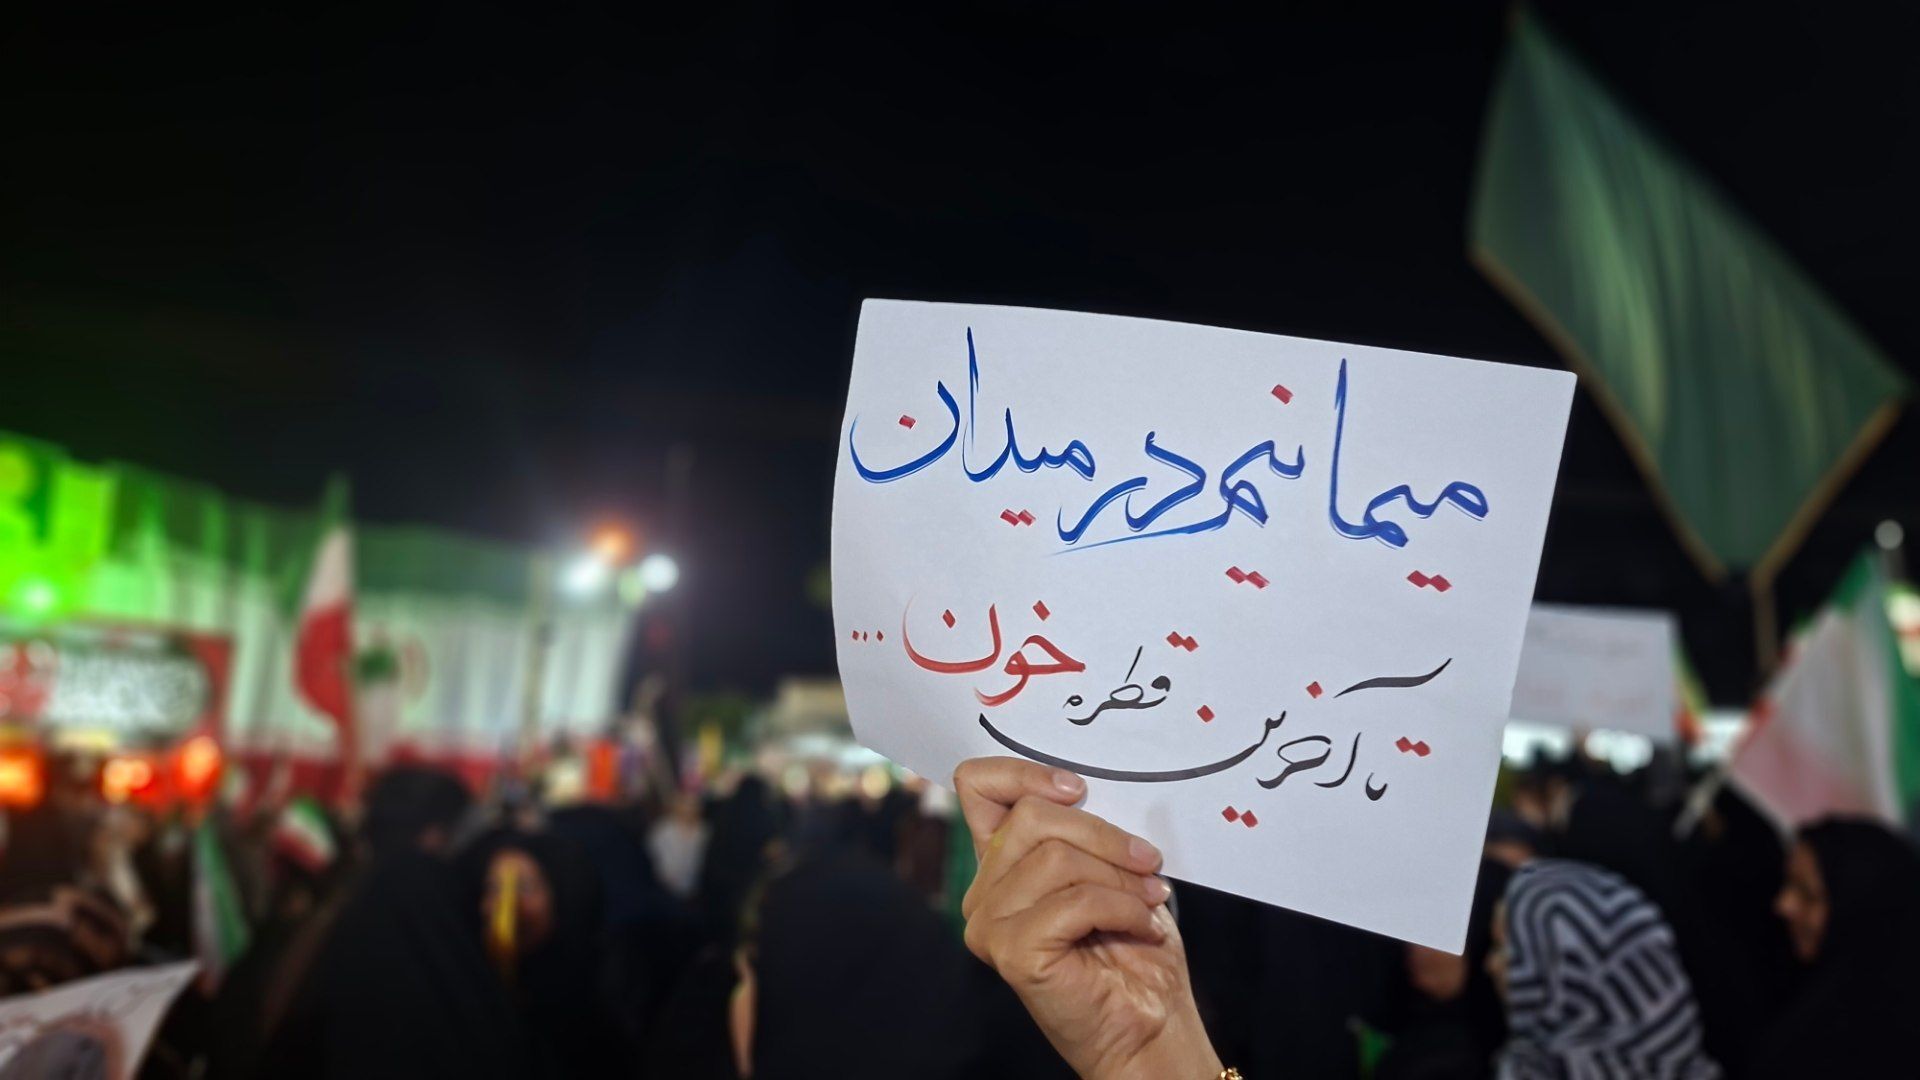 میمانیم در میدان
تا آخرین قطره خون ...